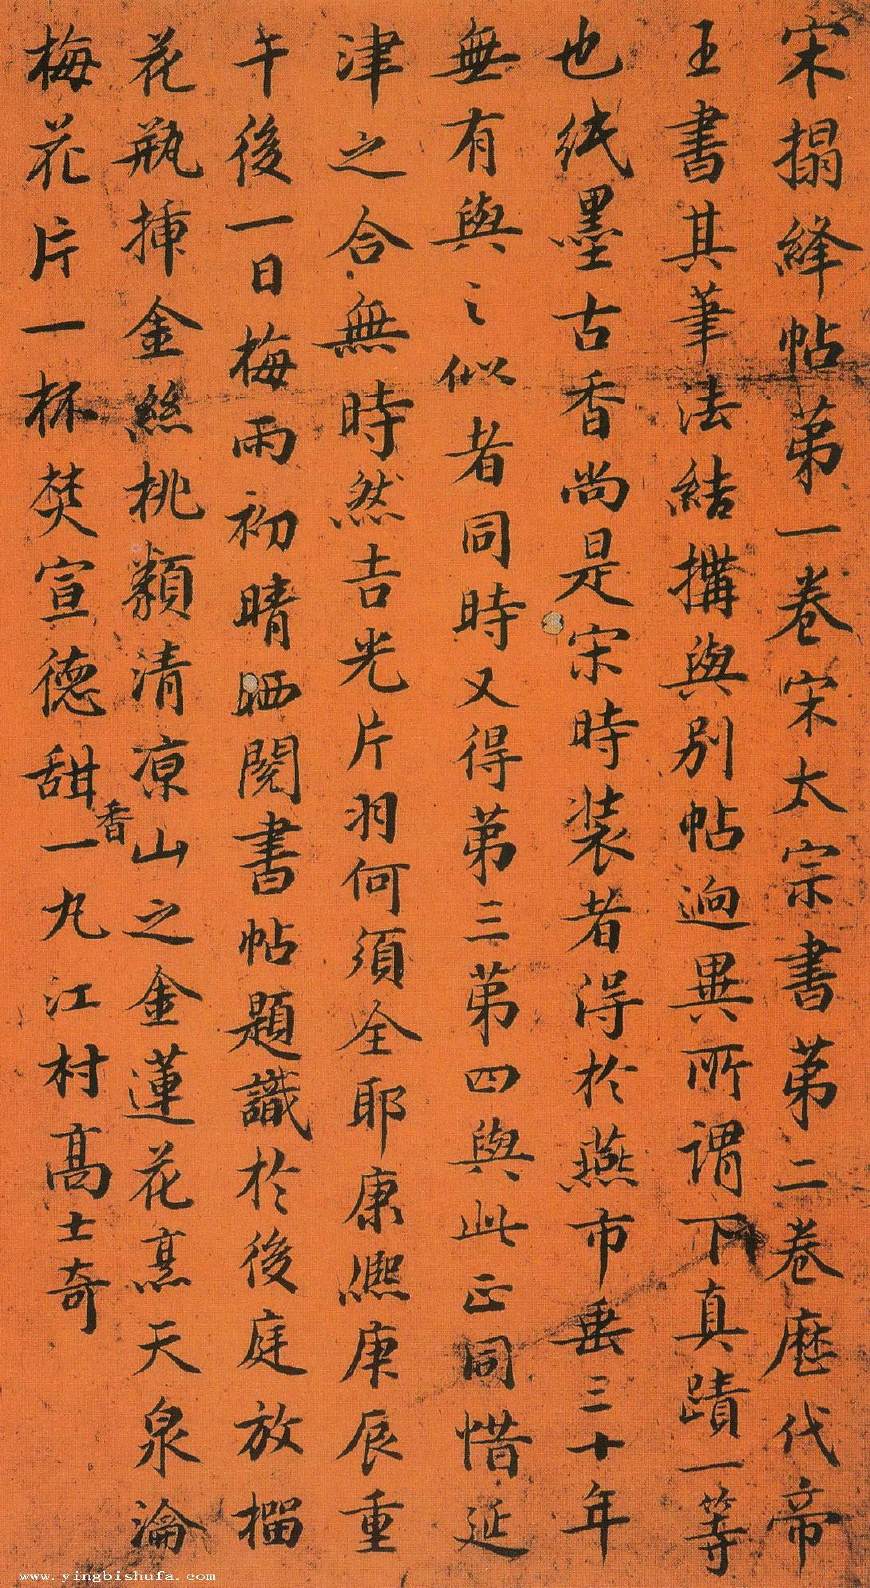 宋搨絳帖第一卷宋太宗書第二卷歷代帝
王書其筆法結搆與別帖迥異所謂下真蹟一等
也紙墨古香尚是宋時装者得於燕市垂三十年
無有與之似者同時又得第三第四與此正同惜延
津之合無時然吉光片羽何須全耶康熙庚辰重
午後一日梅雨初晴晒閱書帖題識於後庭放榴
花瓶揷金絲桃纇清凉山之金蓮花烹天泉瀹
梅花片一杯焚宣德甜香一丸江村高士奇
www.yingbishufa.com